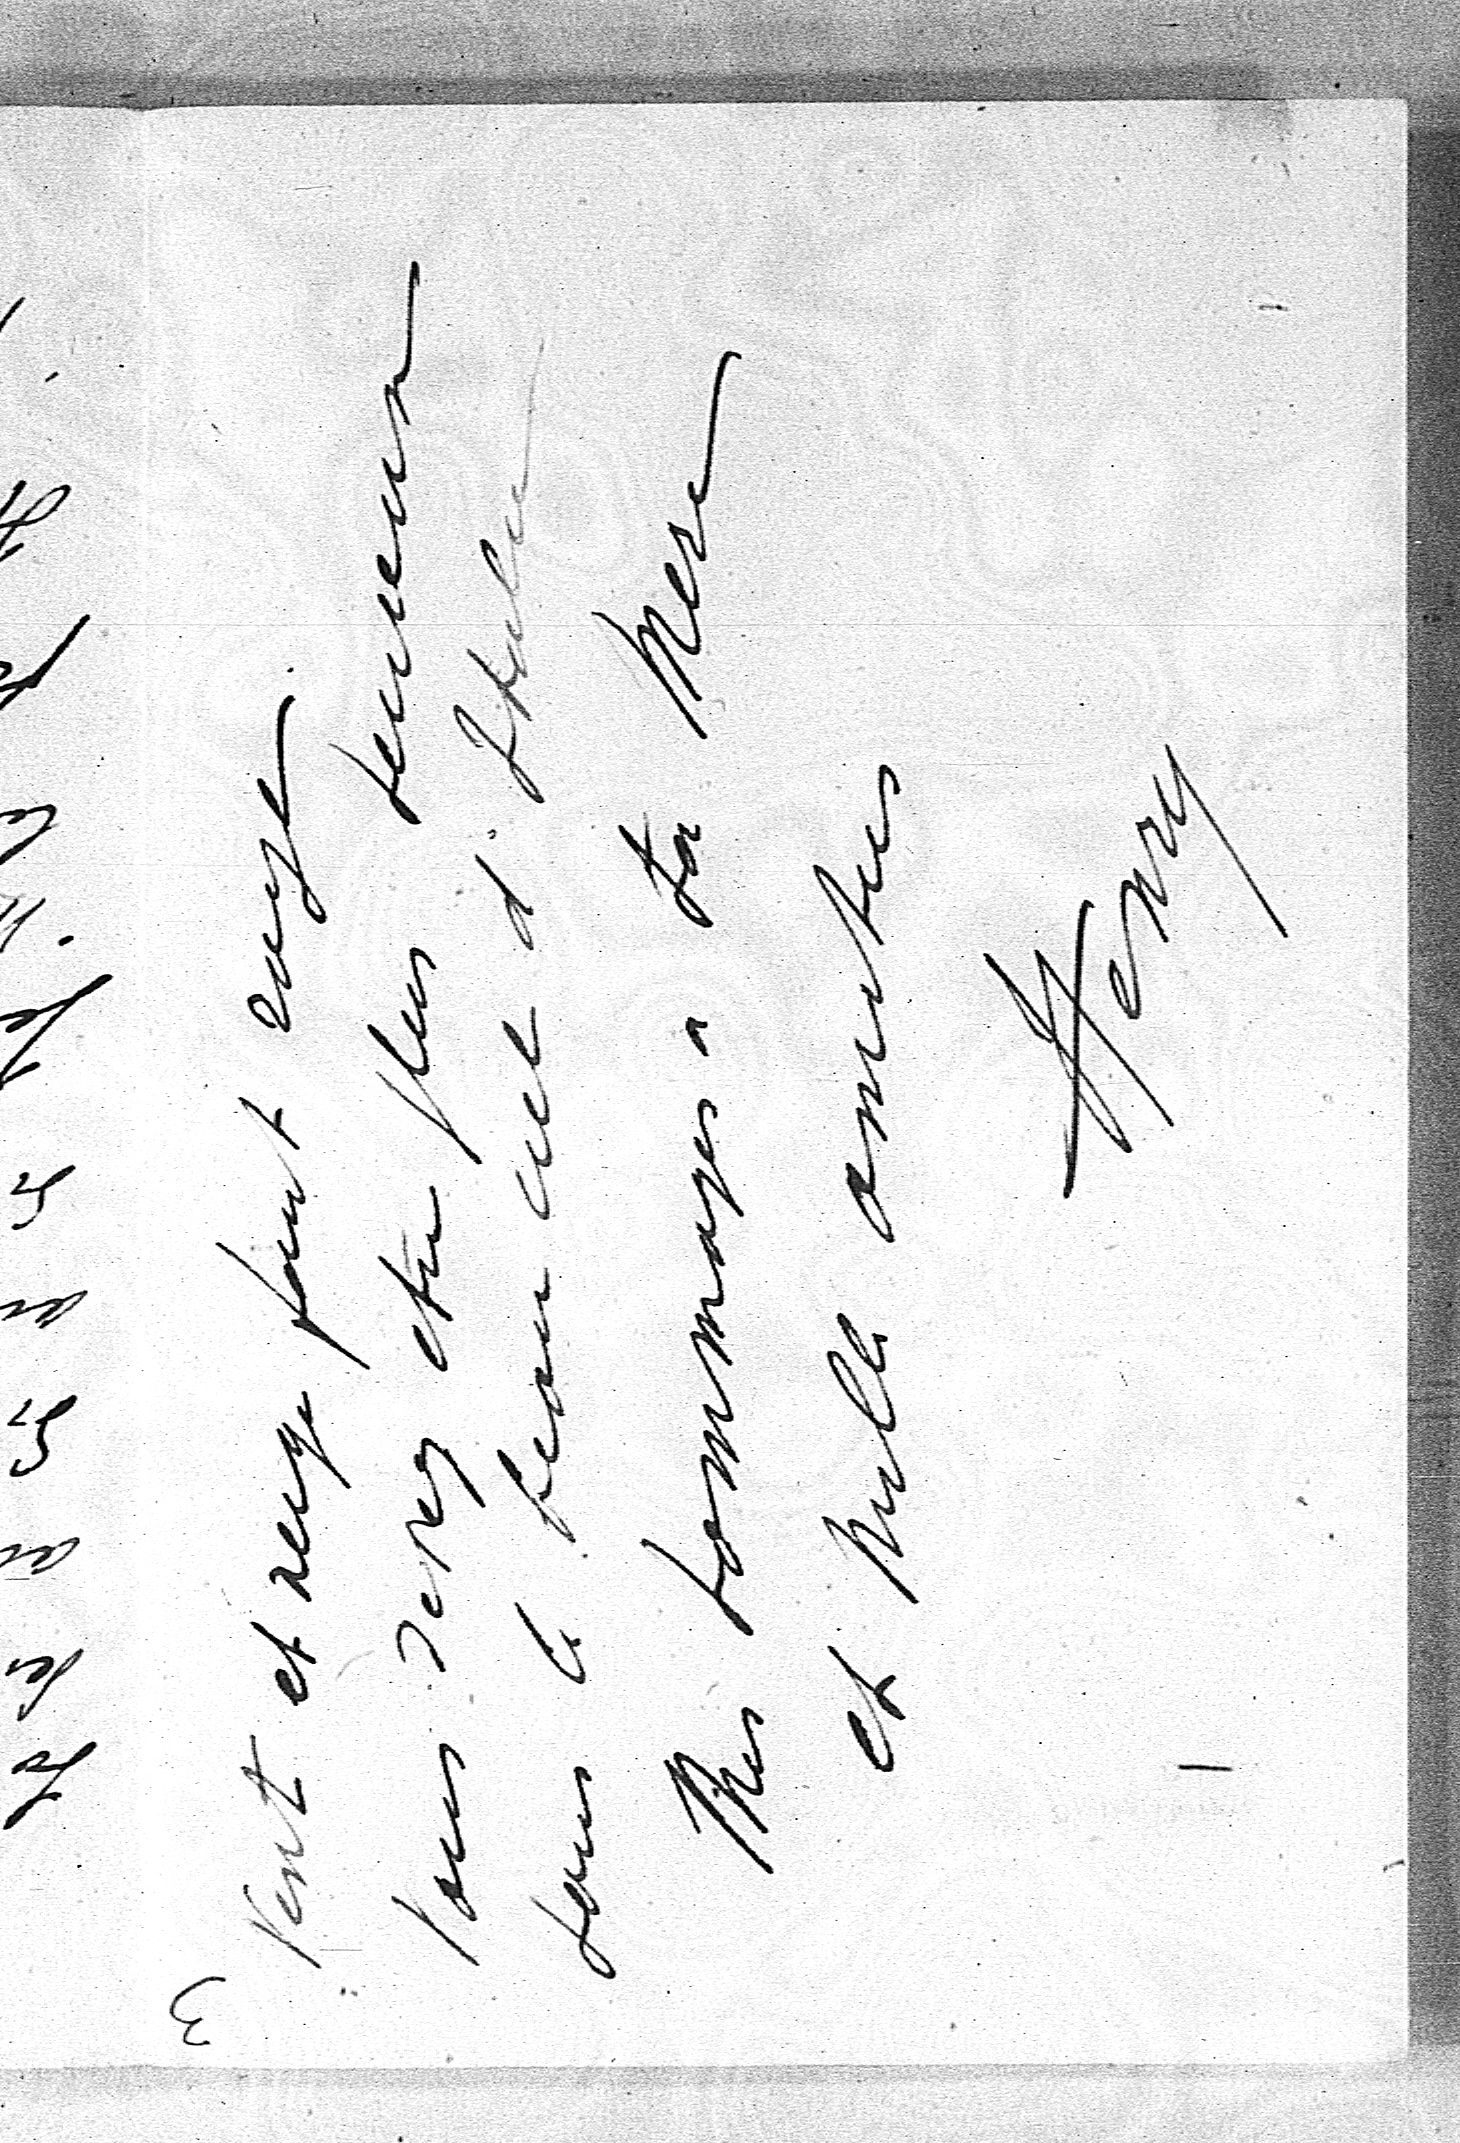 3
Vent et neige font rage.
Vous serez etre plus heureux
sous le beau ciel d'Italie
Mes hommages a ta Mere
et Mille amities
Henry